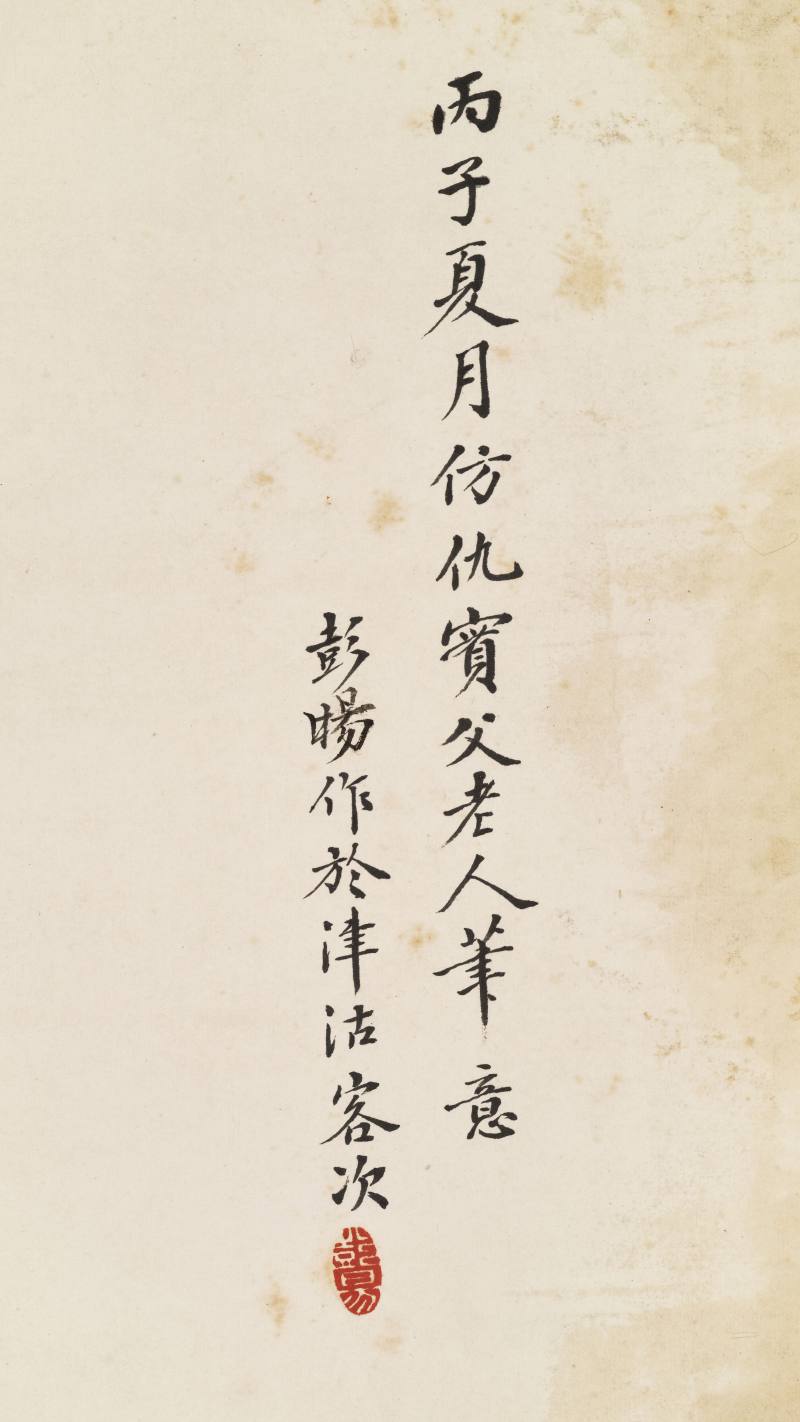 丙子夏月仿仇實父老人筆意
彭暘作於津沽客次